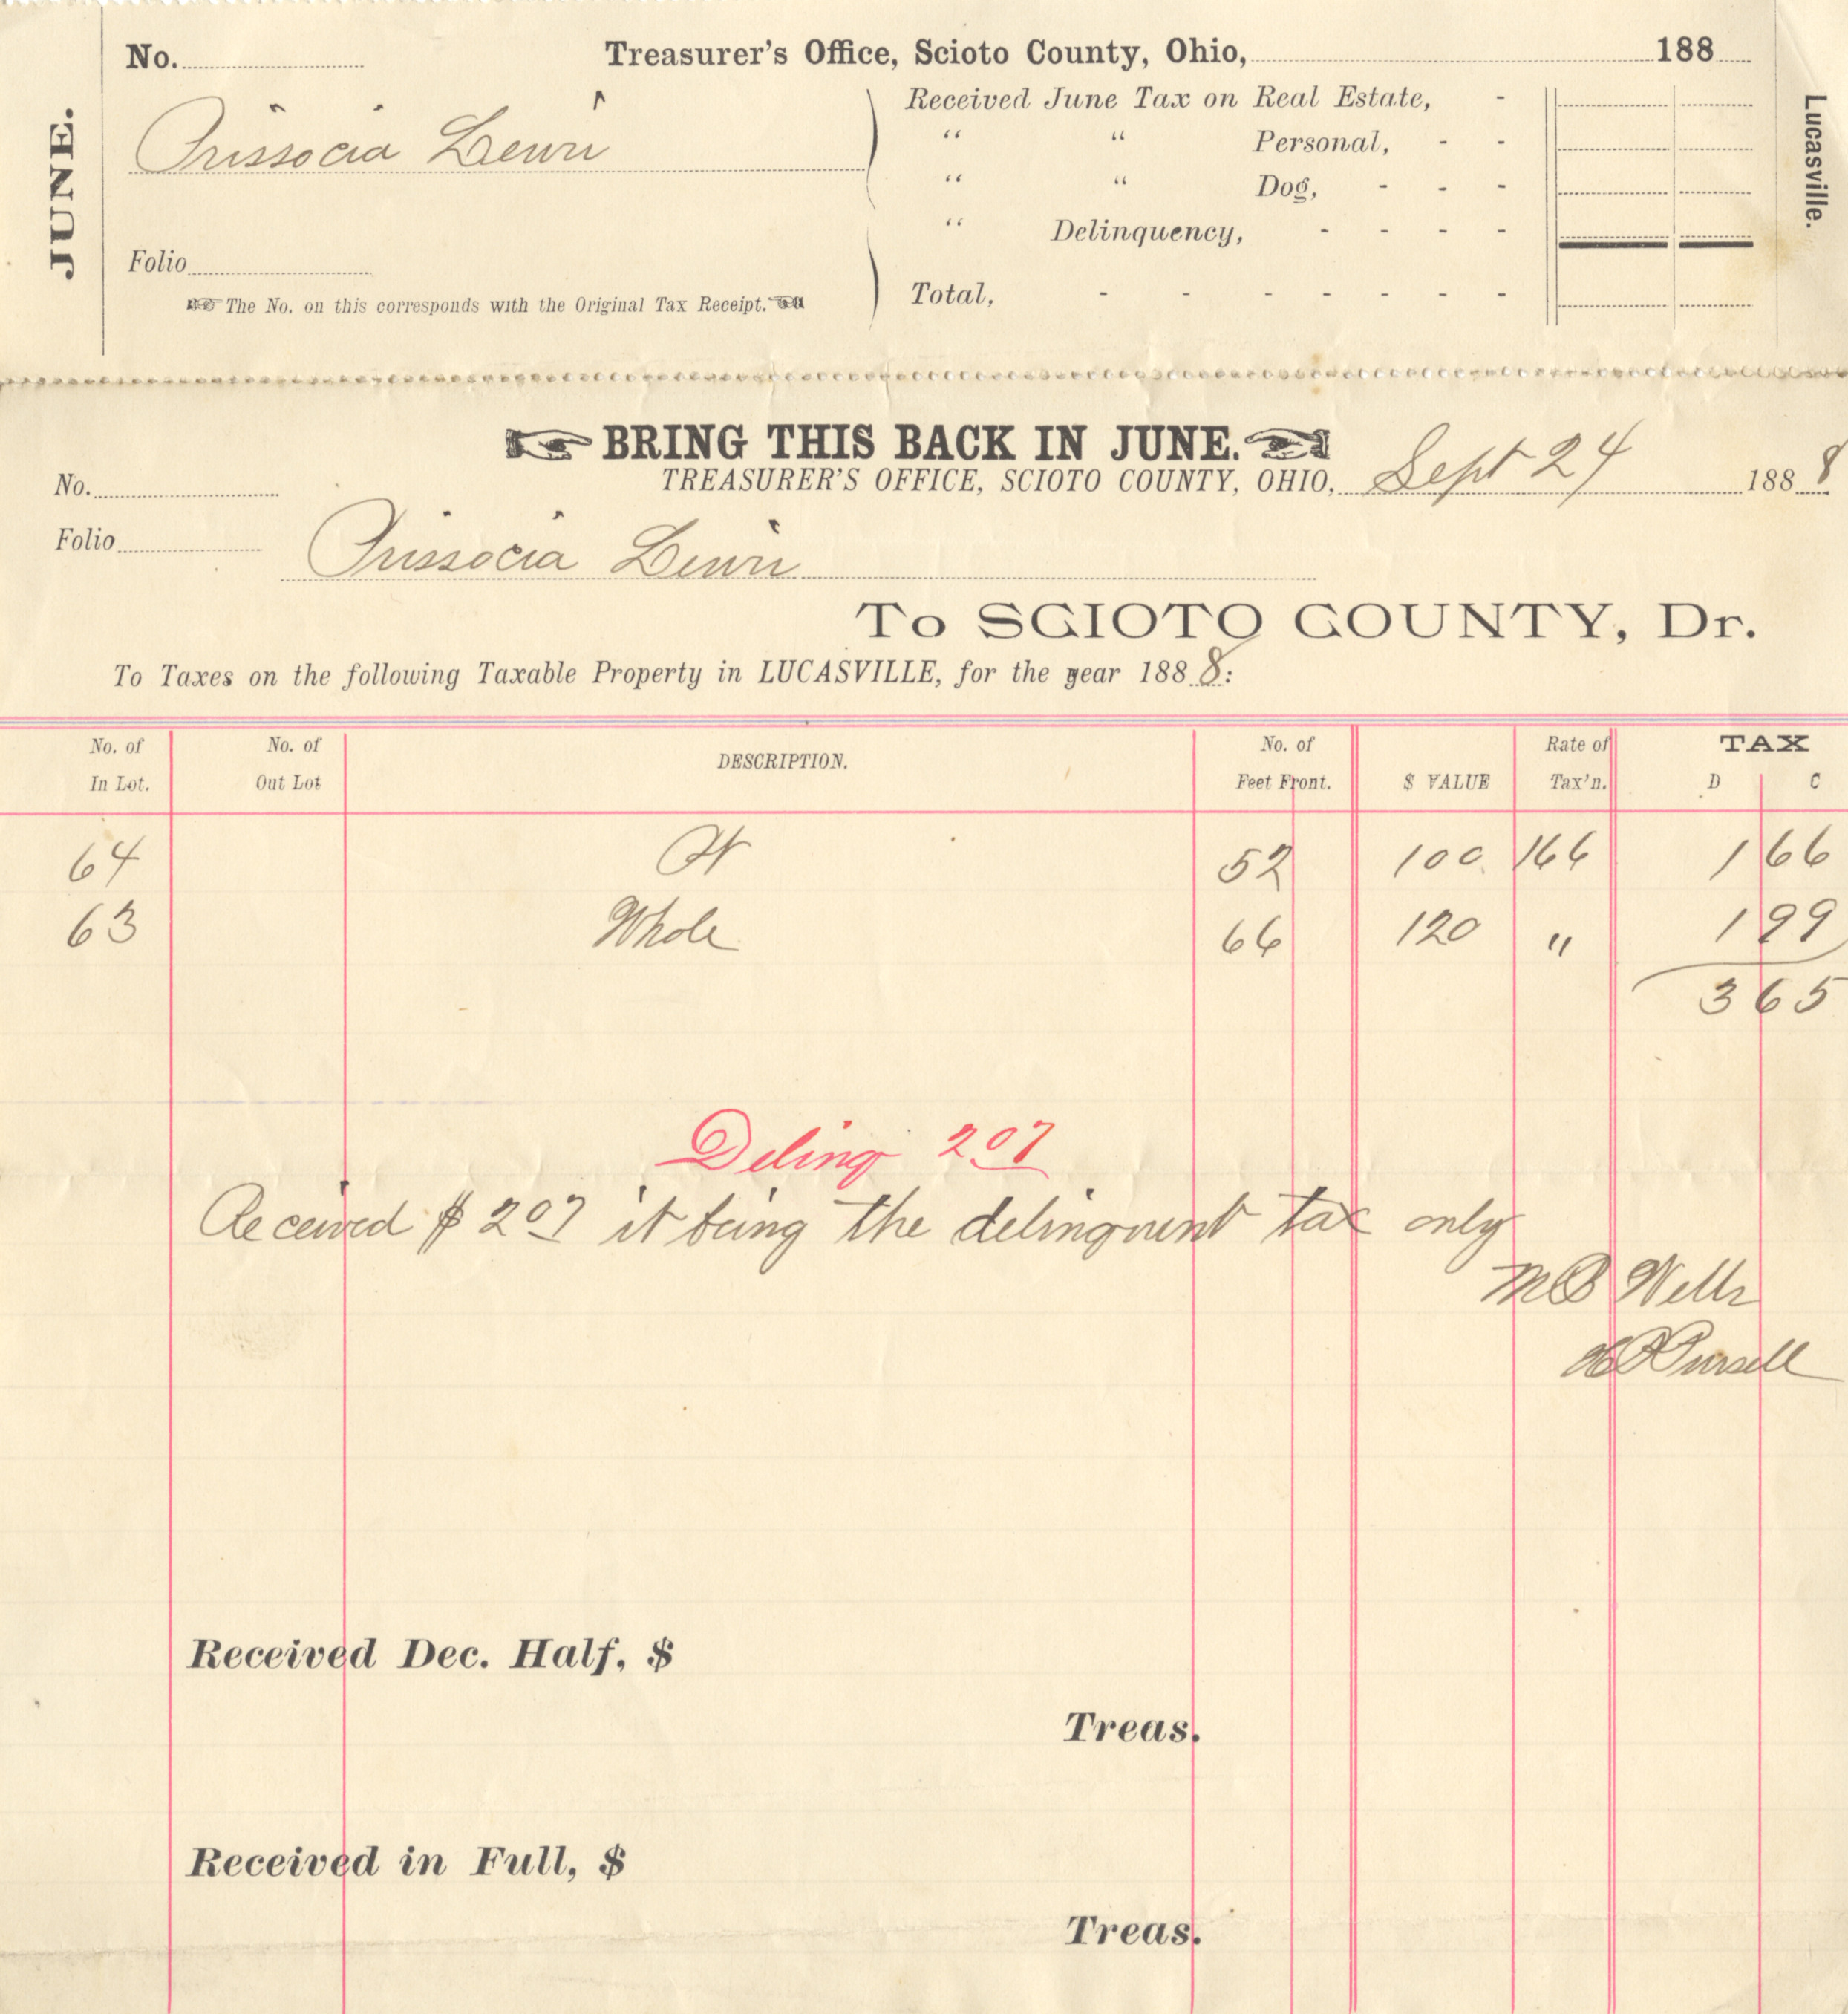 JUNE.
No.
Treasurer's Office, Scioto County, Ohio, 188
Prissocia Lewis
Received June Tax on Real Estate, -
“ “ Personal, - -
“ “ Dog, - - -
“ Delinquency, - - - -
Folio
The No. on this corresponds with the Original Tax Receipt.
Total, - - - - - - -
Lucasville.
BRING THIS BACK IN JUNE.
No.
TREASURER'S OFFICE, SCIOTO COUNTY, OHIO, Sept 24 1888
Folio
Prissocia Lewis
To SCIOTO COUNTY, Dr.
To Taxes on the following Taxable Property in LUCASVILLE, for the year 1888:
No. of In Lot. No. of Out Lot DESCRIPTION. No. of Feet Front. $ VALUE Rate of Tax'n. TAX D C
64 52 100 166 1 66
63 Whole 66 120 " 1 99
3 65
Delinq 2 07
Received $ 2 07 it being the delinquent tax only
M B Wells
Pursell
Received Dec. Half, $
Treas.
Received in Full, $
Treas.